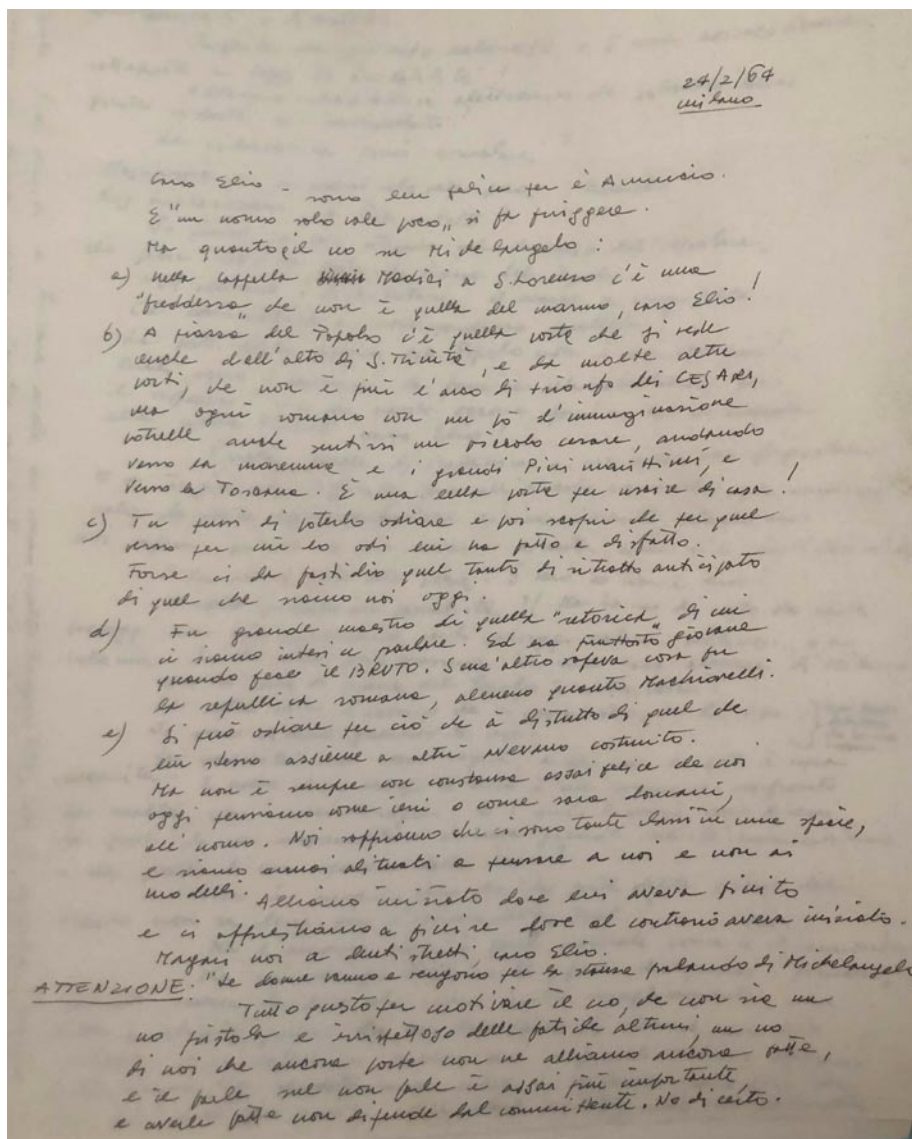 24/2/64
milano
Caro Elio - sono ben felice per è Annuncio.
E "un uomo solo vale poco" si fa friggere.
Ma quanto il no su Michelangelo:
a) nella cappella Medici a S. Lorenzo c'è una
"freddezza" che non è quella del marmo, caro Elio!
b) A piazza del Popolo c'è quella porta che si vede
anche dall'alto di S. Trinità, e da molte altre
parti, che non è più l'arco di trionfo dei CESARI,
ma ogni romano con un pò d'immaginazione
potrebbe anche sentirsi un piccolo cesare, andando
verso la maremma e i grandi Pini marittimi, e
verso la Toscana. È una bella porta per uscire di casa!
c) Tu pensi di poterlo odiare e poi scopri che per quel
verso per cui lo odi lui ha fatto e disfatto.
Forse ci da fastidio quel tanto di ritratto anticipato
di quel che siamo noi oggi.
d) Fu grande maestro di quella "retorica" di cui
ci siamo intesi a parlare. Ed era piuttosto giovane
quando fece il BRUTO. Senz'altro sapeva cosa fu
la repubblica romana, almeno quanto Machiavelli.
e) Si può odiare per ciò che à distrutto di quel che
lui stesso assieme a altri avevano costruito.
Ma non è sempre con constanza assai felice che noi
oggi pensiamo come ieri o come sara domani,
all'uomo. Noi sappiamo che ci sono tante classi in una specie,
e siamo ormai abituati a pensare a noi e non ai
modelli. Abbiamo iniziato dove lui aveva finito
e ci apprestiamo a finire dove al contrario aveva iniziato.
Magari noi a denti stretti, caro Elio.
ATTENZIONE: "Le donne vanno e vengono per la stanza parlando di Michelangelo
Tutto questo per motivare il no, che non sia un
no pistola e irrispettoso delle fatiche altrui, un no
di noi che ancora porte non ne abbiamo ancora fatte,
e il farle sul non farle è assai più importante,
e averle fatte non difende dal committente. No di certo.